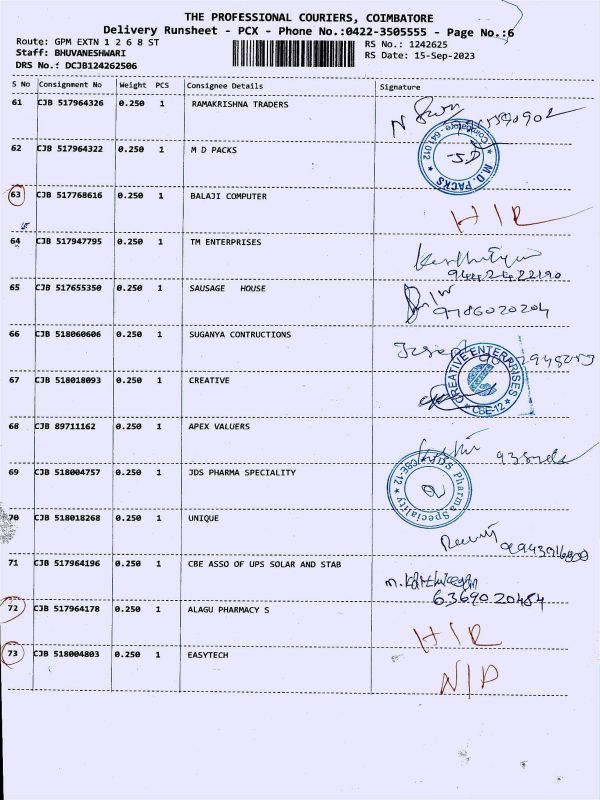 THE PROFESSIONAL COURIERS, COIMBATORE
Delivery Runsheet - PCX - Phone No.:0422-3505555 - Page No.:6
Route: GPM EXTN 1 2 6 8 ST
RS No.: 1242625
Staff: BHUVANESHWARI
RS Date: 15-Sep-2023
DRS No.: DCJB124262506
S No Consignment No Weight PCS Consignee Details Signature
61 CJB 517964326 0.250 1 RAMAKRISHNA TRADERS
62 CJB 517964322 0.250 1 M D PACKS
Coimbatore - 641 012 * M.D. PACKS *
63 CJB 517768616 0.250 1 BALAJI COMPUTER
H/R
64 CJB 517947795 0.250 1 TM ENTERPRISES
65 CJB 517655350 0.250 1 SAUSAGE HOUSE
9786020204
66 CJB 518060606 0.250 1 SUGANYA CONTRUCTIONS
67 CJB 518018093 0.250 1 CREATIVE
CREATIVE ENTERPRISES * CBE-12 *
68 CJB 89711162 0.250 1 APEX VALUERS
69 CJB 518004757 0.250 1 JDS PHARMA SPECIALITY
JDS Pharma Speciality * CBE-12 *
70 CJB 518018268 0.250 1 UNIQUE
71 CJB 517964196 0.250 1 CBE ASSO OF UPS SOLAR AND STAB
m. Karthikeyan
6369020484
72 CJB 517964178 0.250 1 ALAGU PHARMACY S
H/R
73 CJB 518004803 0.250 1 EASYTECH
N/P